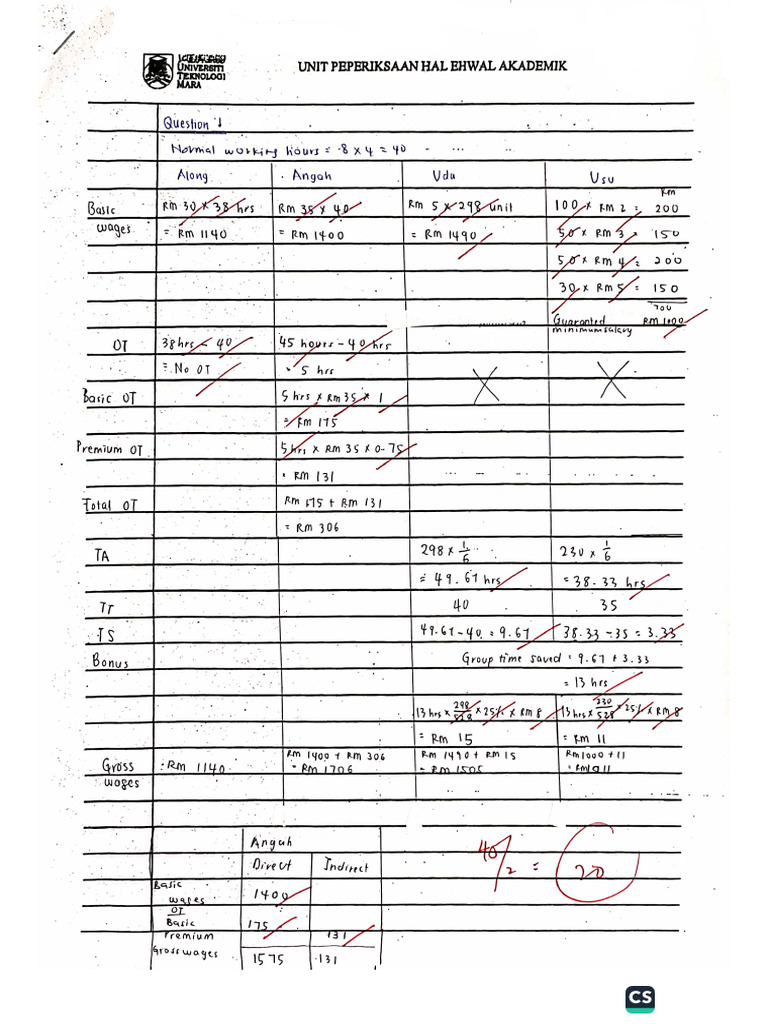 UNIVERSITI
TEKNOLOGI
MARA
UNIT PEPERIKSAAN HAL EHWAL AKADEMIK
Question 1
Normal working hours = 8 x 4 = 40
Along Angah Uda Usu
RM
Basic wages RM 30 x 38 hrs RM 35 x 40 RM 5 x 298 unit 100 x RM 2 = 200
= RM 1140 = RM 1400 = RM 1490 50 x RM 3 = 150
50 x RM 4 = 200
30 x RM 5 = 150
700
Guaranted minimum salary RM 1000
OT 38hrs - 40 45 hours - 40 hrs
= No OT = 5 hrs X X
Basic OT 5 hrs x RM 35 x 1
= RM 175
Premium OT 5 hrs x RM 35 x 0.75
= RM 131
Total OT RM 175 + RM 131
= RM 306
TA 298 x 1/6 230 x 1/6
= 49.67 hrs = 38.33 hrs
TT 40 35
TS 49.67 - 40 = 9.67 38.33 - 35 = 3.33
Bonus Group time saved = 9.67 + 3.33
= 13 hrs
13 hrs x 298/528 x 25% x RM 8 13 hrs x 230/528 x 25% x RM 8
= RM 15 = RM 11
Gross wages = RM 1140 RM 1400 + RM 306 RM 1490 + RM 15 RM 1000 + 11
= RM 1706 = RM 1505 = RM 1011
Angah
Direct Indirect
40/2 = 20
Basic wages 1400
OT
Basic 175
Premium 131
Gross wages 1575 131
CS